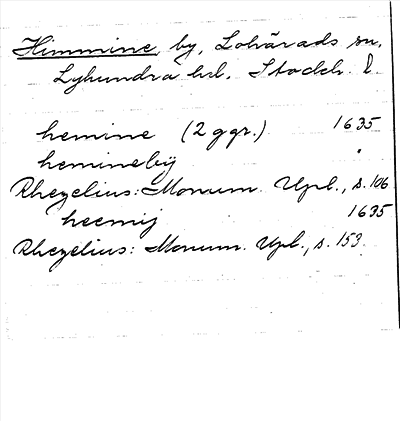 Himmine, by, Lohärads sn,
Lyhundra hd. Stockh. l.
hemine (2 ggr.) 1635
hemineby "
Rhezelius: Monum. Upl., s. 106
heemij 1635
Rhezelius: Monum. Upl., s. 153.